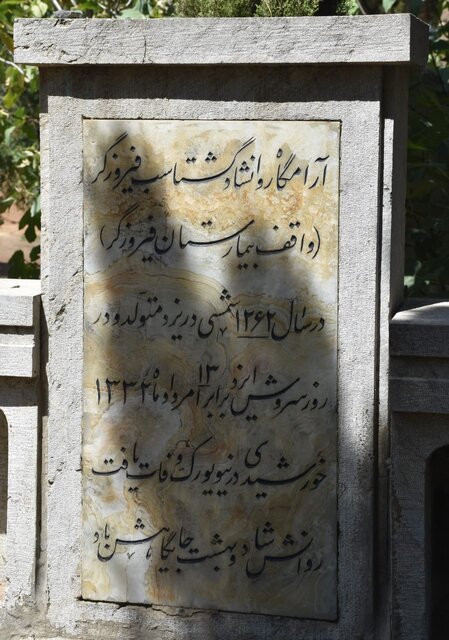 آرامگاه روانشاد گشتاسب فیروزگر
(واقف بیمارستان فیروزگر)
در سال ۱۲۶۲ شمسی در یزد متولد و در
روز سروش ایزد برابر ۱۳ امرداد ماه ۱۳۳۲
خورشیدی در نیویورک وفات یافت
روانش شاد و بهشت جایگاهش باد